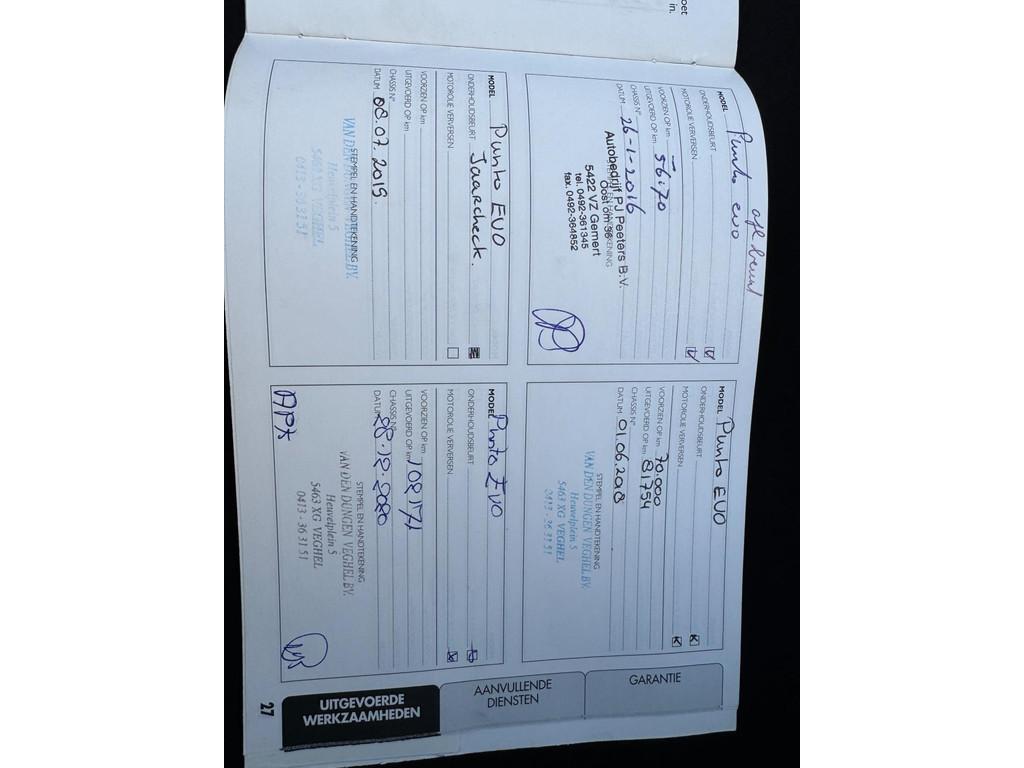 oet
in.
afleveri
MODEL Punto evo
ONDERHOUDSBEURT
MOTOROLIE VERVERSEN
VOORZIEN OP km
UITGEVOERD OP km 56.70
CHASSIS N°
DATUM 26-1-2016
STEMPEL EN HANDTEKENING
Autobedrijf PJ Peeters B.V.
Oost om 36
5422 VZ Gemert
tel. 0492-361345
fax. 0492-364852
MODEL Punto EVO
ONDERHOUDSBEURT
MOTOROLIE VERVERSEN
VOORZIEN OP km 70.000
UITGEVOERD OP km 81754
CHASSIS N°
DATUM 01.06.2018
STEMPEL EN HANDTEKENING
VAN DEN DUNGEN VEGHEL BV.
Heuvelplein 5
5463 XG VEGHEL
0413 - 36 31 51
MODEL Punto EVO
ONDERHOUDSBEURT Jaarcheck.
MOTOROLIE VERVERSEN
VOORZIEN OP km
UITGEVOERD OP km
CHASSIS N°
DATUM 08.07.2019
STEMPEL EN HANDTEKENING
VAN DEN DUNGEN VEGHEL BV.
Heuvelplein 5
5463 XG VEGHEL
0413 - 36 31 51
MODEL Punto EVO
ONDERHOUDSBEURT
MOTOROLIE VERVERSEN
VOORZIEN OP km
UITGEVOERD OP km 108171
CHASSIS N°
DATUM 28.12.2020
STEMPEL EN HANDTEKENING
VAN DEN DUNGEN VEGHEL BV.
Heuvelplein 5
5463 XG VEGHEL
0413 - 36 31 51
APK
GARANTIE
AANVULLENDE
DIENSTEN
UITGEVOERDE
WERKZAAMHEDEN
27